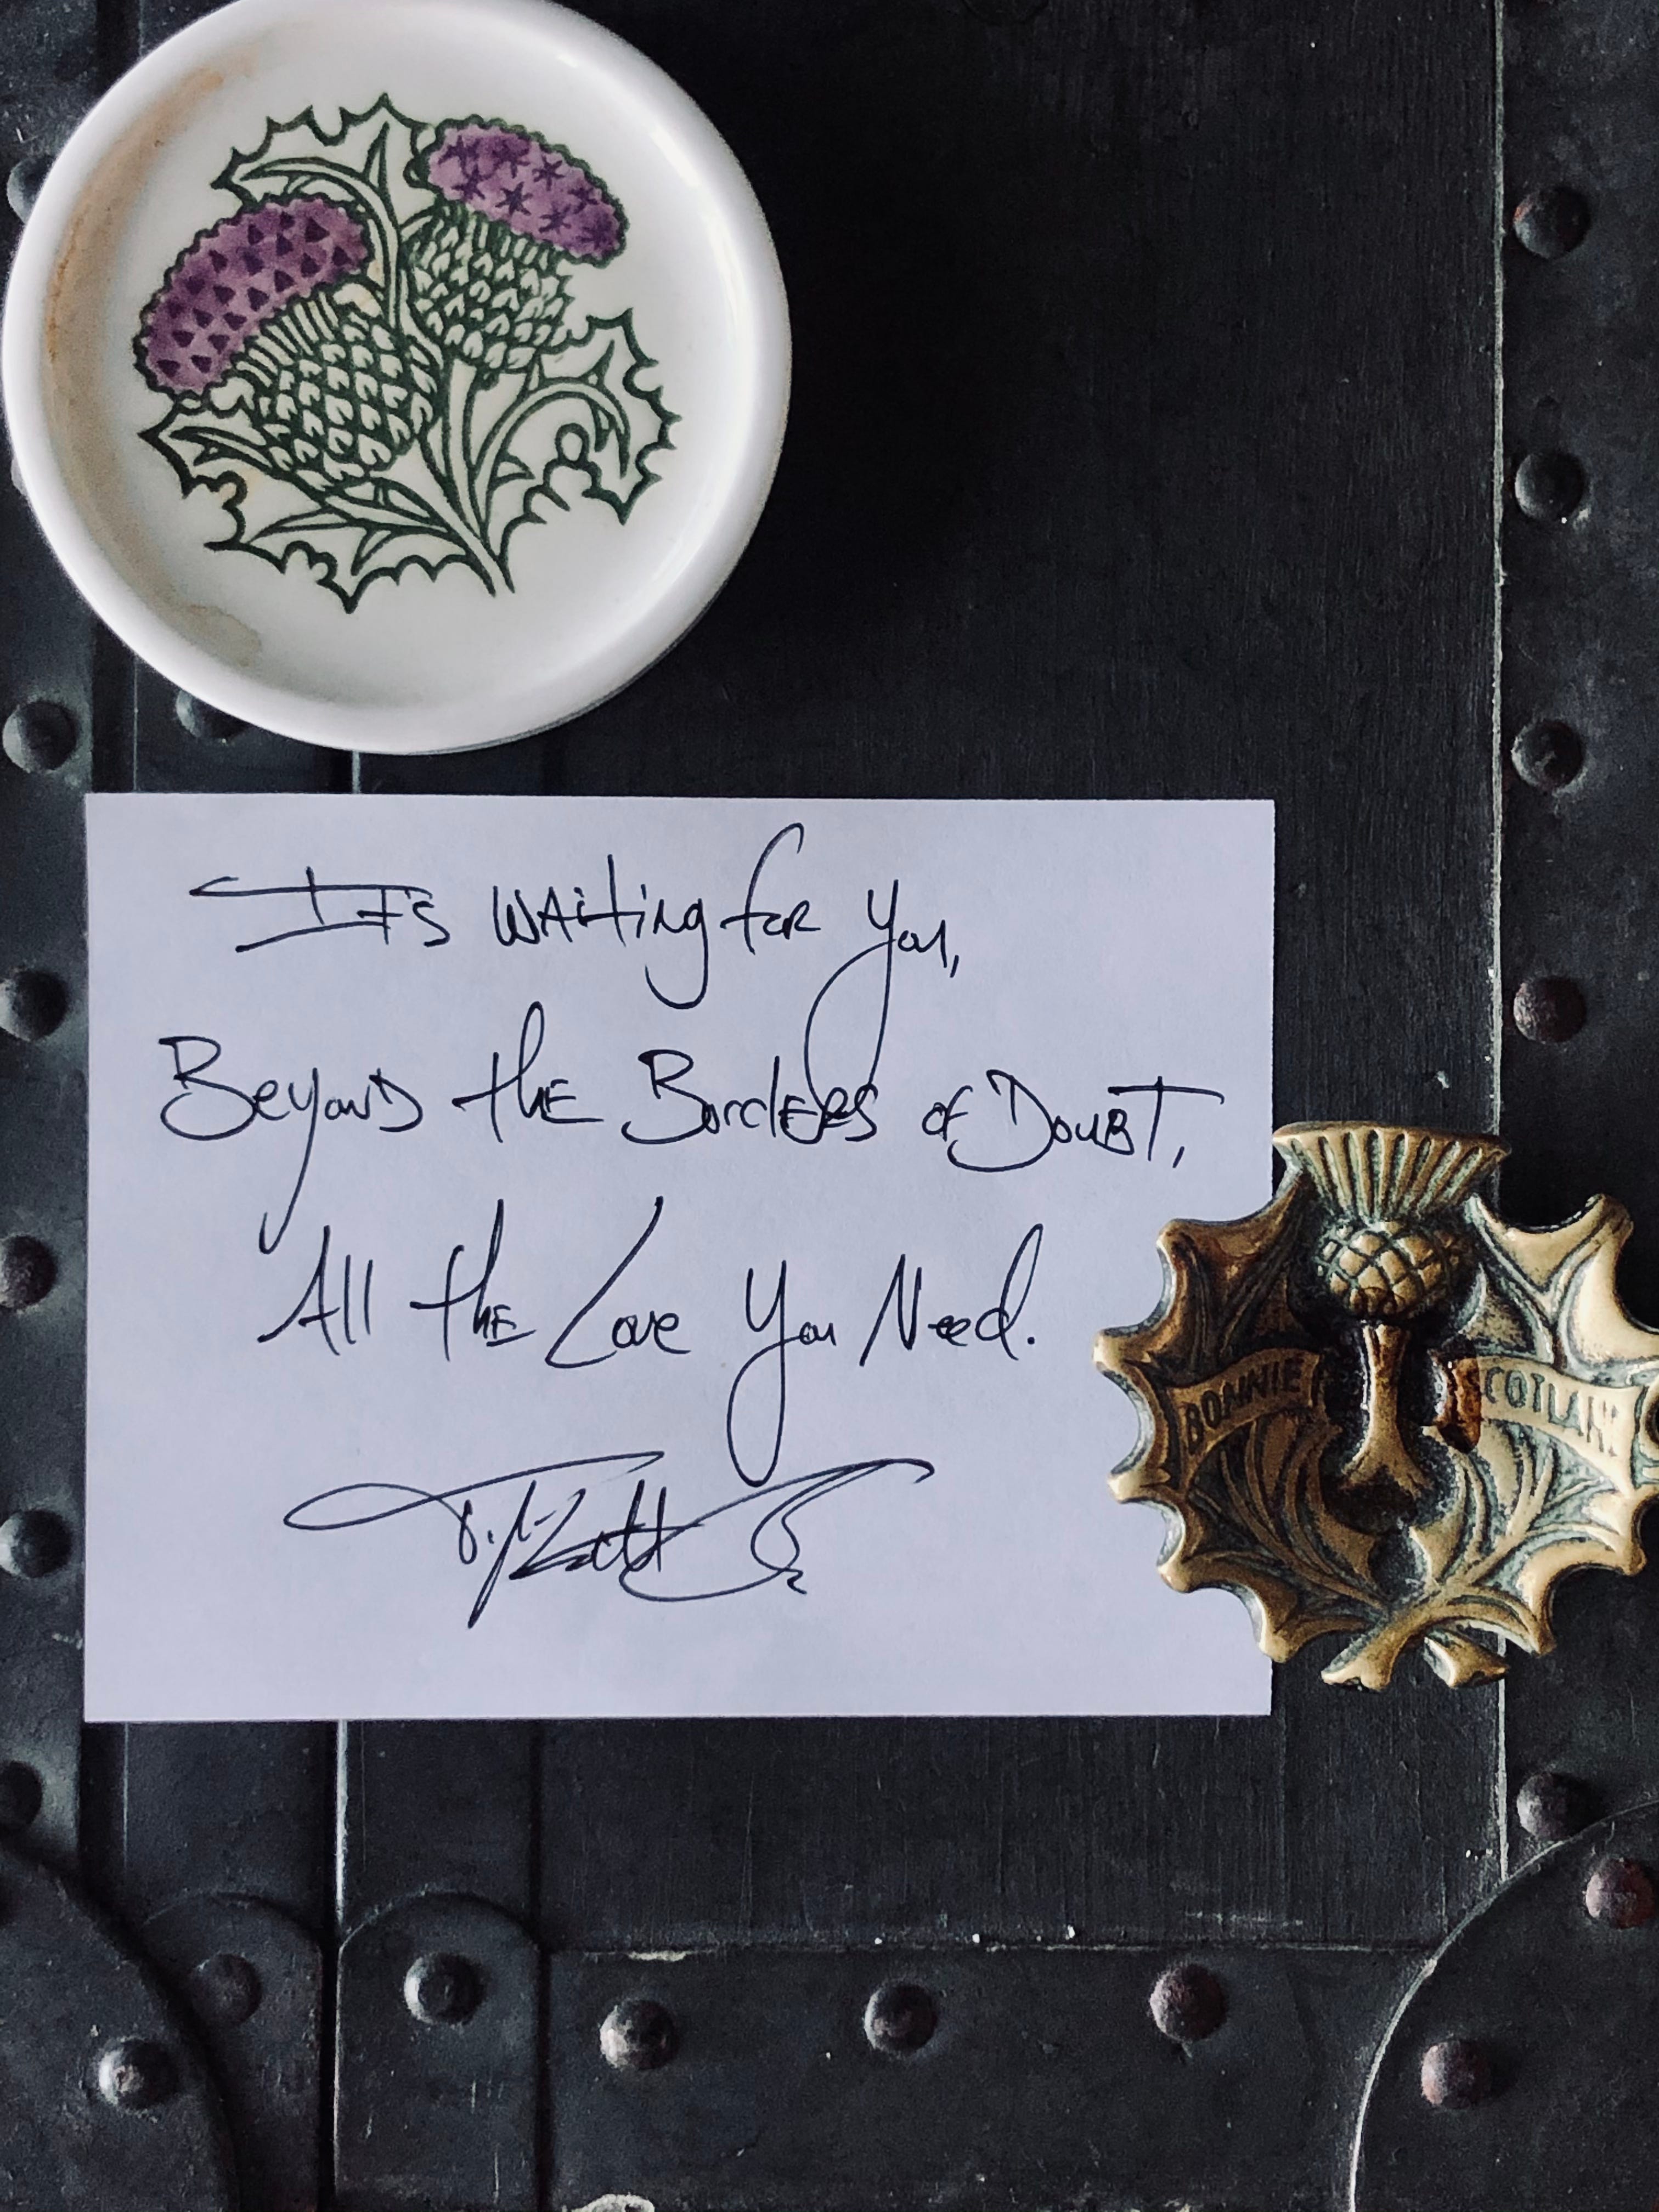 It's waiting for you,
Beyond the Borders of Doubt,
All the Love You Need.
BONNIE SCOTLAND